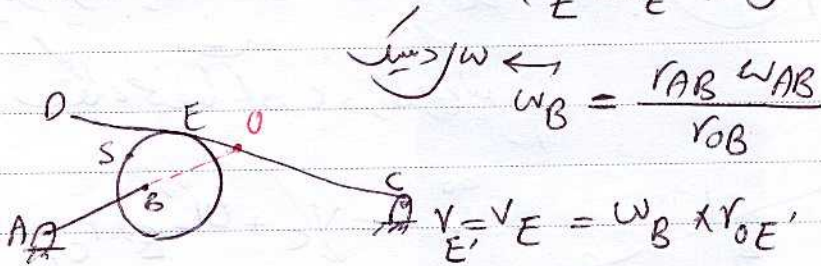 E E
ω دیسک ←
ω_B = r_AB ω_AB / r_OB
D E O
S
B C
A
V_E' = V_E = ω_B × r_OE'